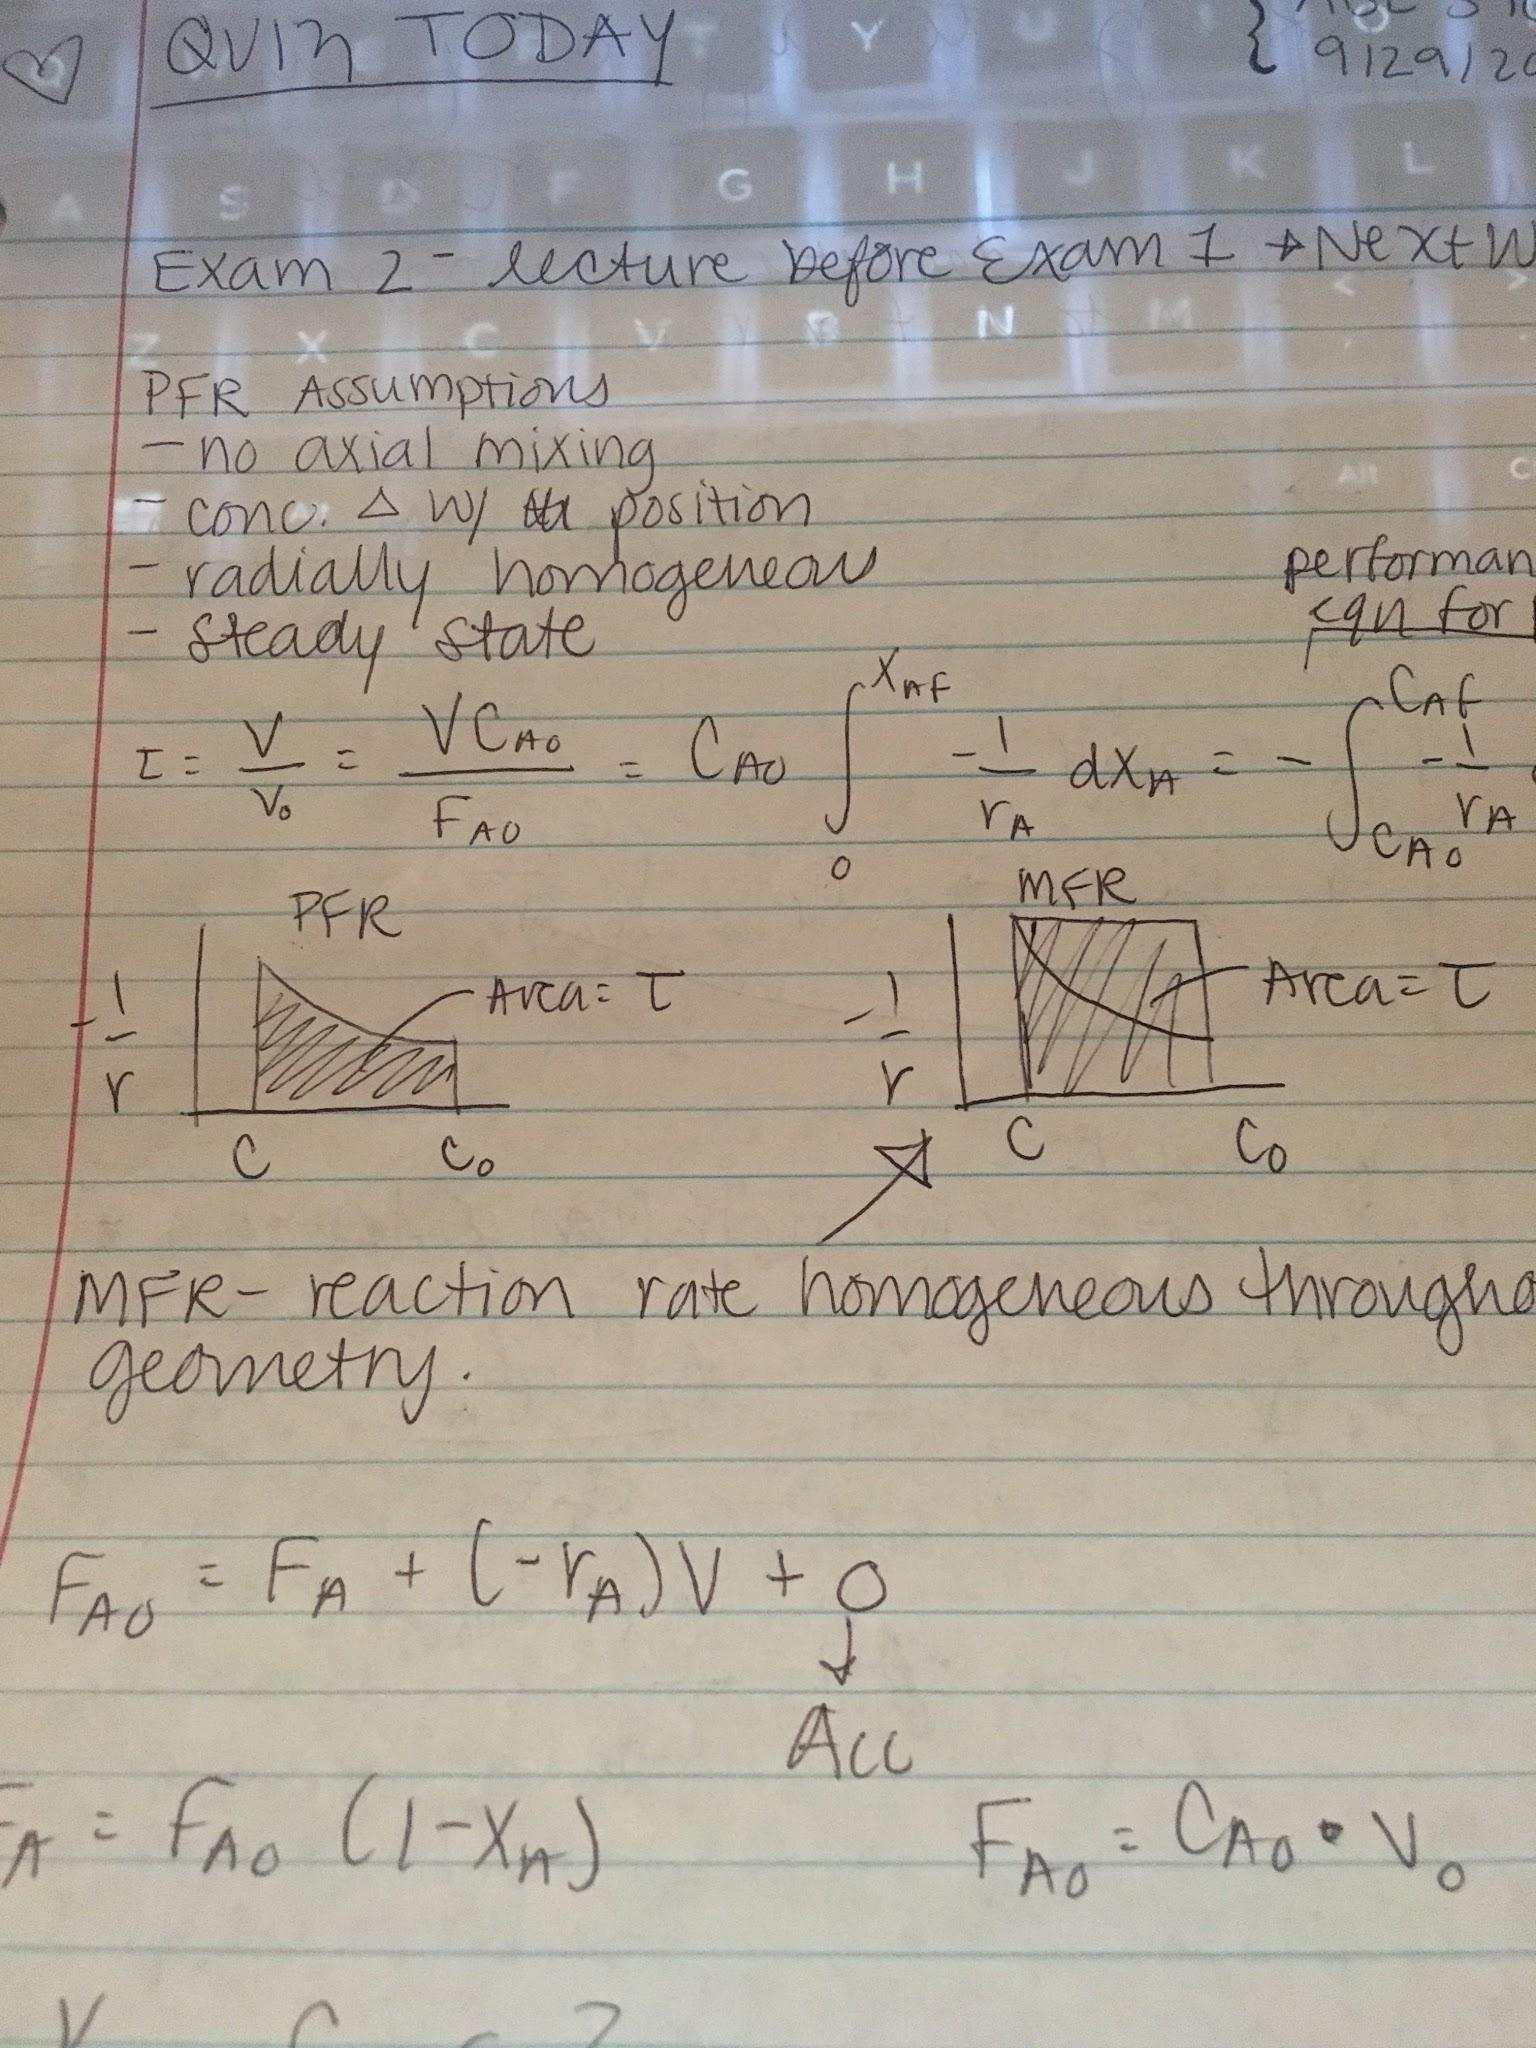 QUIZ TODAY
9/29/20
Exam 2 - lecture before Exam 1 → Next W
PFR Assumptions
- no axial mixing
- conc. Δ w/ position
- radially homogeneous
- steady state
performan
eqn for
τ = V/v₀ = VC_A0/F_A0 = C_A0 ∫₀^X_AF -1/r_A dX_A = - ∫_C_A0^C_Af -1/r_A
PFR
MFR
-1/r
Area = τ
-1/r
Area = τ
C C₀
C C₀
MFR - reaction rate homogeneous througho
geometry.
F_A0 = F_A + (-r_A)V + 0
↓
Acc
F_A = F_A0 (1-X_A)
F_A0 = C_A0 • v₀